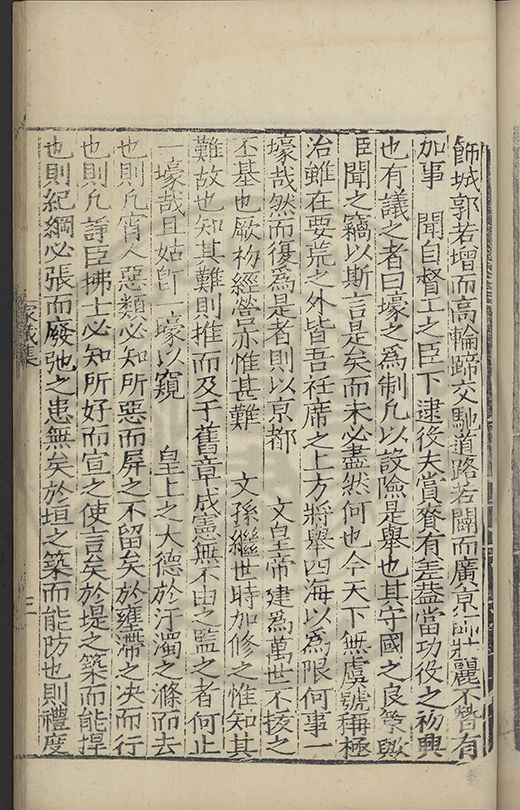 飾城郭若增而高輪蹄交馳道路若闢而廣京師壯麗不暜有
加事　聞自督工之臣下逮役夫賞賚有差葢當功役之初興
也有議之者曰壕之為制凡以設險是舉也其守國之良策歟
臣聞之竊以斯言是矣而未必盡然何也今天下無虞號稱極
治雖在要荒之外皆吾衽席之上方將舉四海以為限何事一
壕哉然而復為是者則以京都　文皇帝建為萬世不拔之
丕基也厥初經營亦惟甚難　文孫繼世時加修之惟知其
難故也知其難則推而及于舊章成憲無不由之監之者何止
一壕哉且姑卽一壕以窺　皇上之大德於汙濁之滌而去
也則凡宵人惡類必知所惡而屏之不留矣於壅滯之决而行
也則凡諍臣拂士必知所好而宣之使言矣於堤之築而能捍
也則紀綱必張而廢弛之患無矣於垣之築而能防也則禮度
三